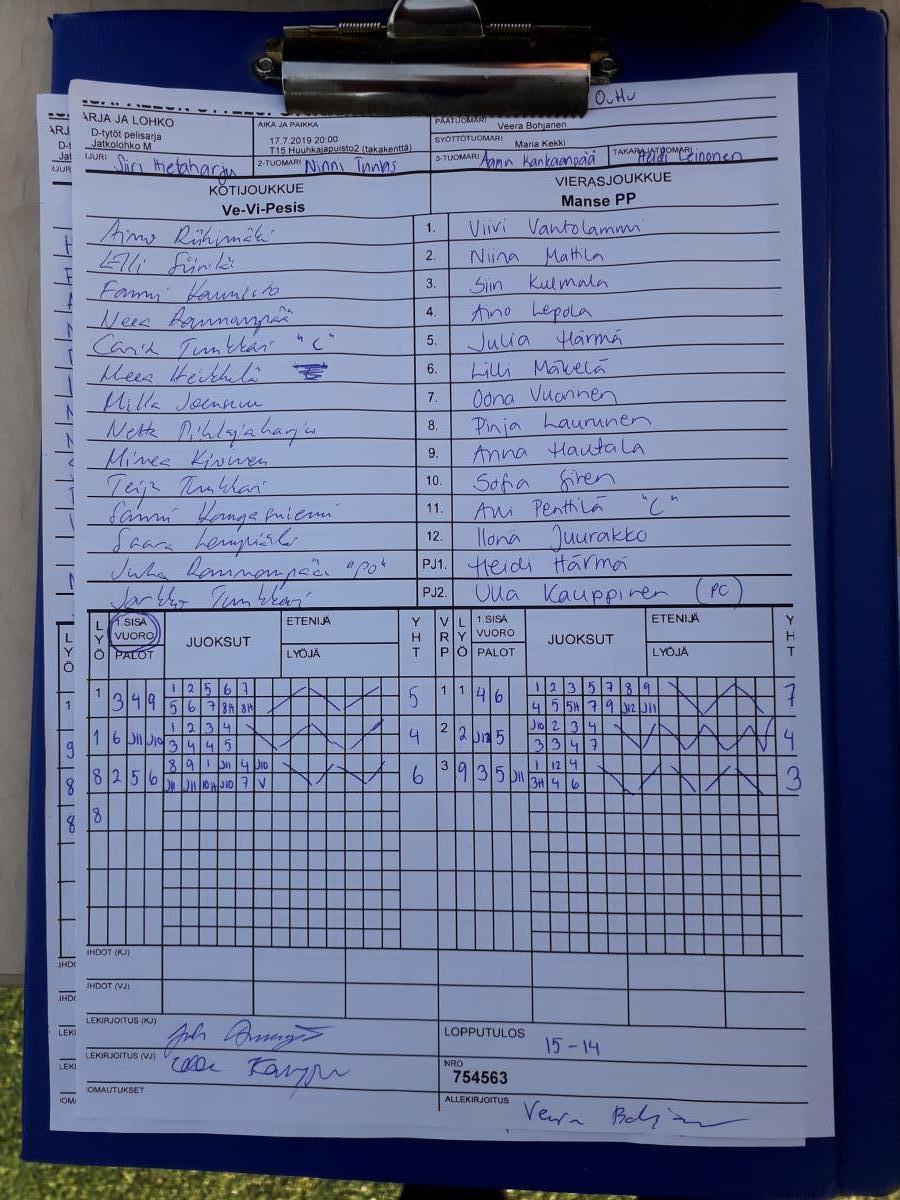 Outtu
ARJA JA LOHKO
D-tytöt pelisarja
Jatkolohko M
AIKA JA PAIKKA
17.7.2019 20:00
T15 Huuhkajapuisto2 (takakenttä)
PÄÄTUOMARI
Veera Bohjanen
SYÖTTÖTUOMARI
Maria Kekki
JURI Siiri Metsäharju
2-TUOMARI Ninni Tunnas
3-TUOMARI Aamu Kankaanpää
TAKARAJATUOMARI Heidi Leinonen
KOTIJOUKKUE
Ve-Vi-Pesis
VIERASJOUKKUE
Manse PP
Aino Riihimäki 1. Viivi Vantolammi
Elli Siirilä 2. Niina Mattila
Fanni Kaunisto 3. Siin Kulmala
Neea Rannanpää 4. Aino Lepola
Carita Tunkkari "C" 5. Julia Härmä
Meea Heikkilä 6. Lilli Mäkelä
Milla Joensuu 7. Oona Vuorinen
Netta Pihlajaharju 8. Pinja Laurunen
Minea Kivinen 9. Anna Hautala
Teija Tunkkari 10. Sofia Siren
Sanni Kangasniemi 11. Anni Penttilä "C"
Saara 12. Ilona Juurakko
Juha Rannanpää "PO" PJ1. Heidi Härmä
Jarkko Tunkkari PJ2. Ulla Kauppinen (PC)
LYÖ 1.SISÄ VUORO PALOT JUOKSUT ETENIJÄ LYÖJÄ YHT VRP LYÖ 1.SISÄ VUORO PALOT JUOKSUT ETENIJÄ LYÖJÄ YHT
1 3 4 9 1 2 5 6 7 5 1 1 4 6 1 2 3 5 7 8 9 7
5 6 7 8H 8H 4 5 5H 7 9 J12 J11
1 6 J11 J10 1 2 3 4 4 2 2 J12 5 J10 2 3 4 4
3 4 4 5 3 3 4 7
8 2 5 6 8 9 1 J11 4 J10 6 3 9 3 5 J11 1 12 4 3
J11 J11 10H J10 7 V 3H 4 6
8
JHDOT (KJ)
JHDOT (VJ)
LEKIRJOITUS (KJ)
LEKIRJOITUS (VJ)
LOPPUTULOS
15-14
NRO
754563
IOMAUTUKSET
ALLEKIRJOITUS